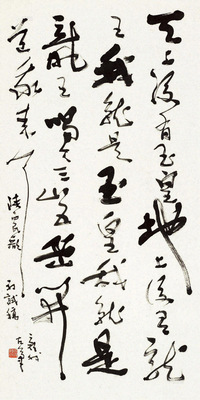 天上没有玉皇地上没有龍
王我就是玉皇我就是
龍王喝令三山五岳開
道我來了
陕西民歌